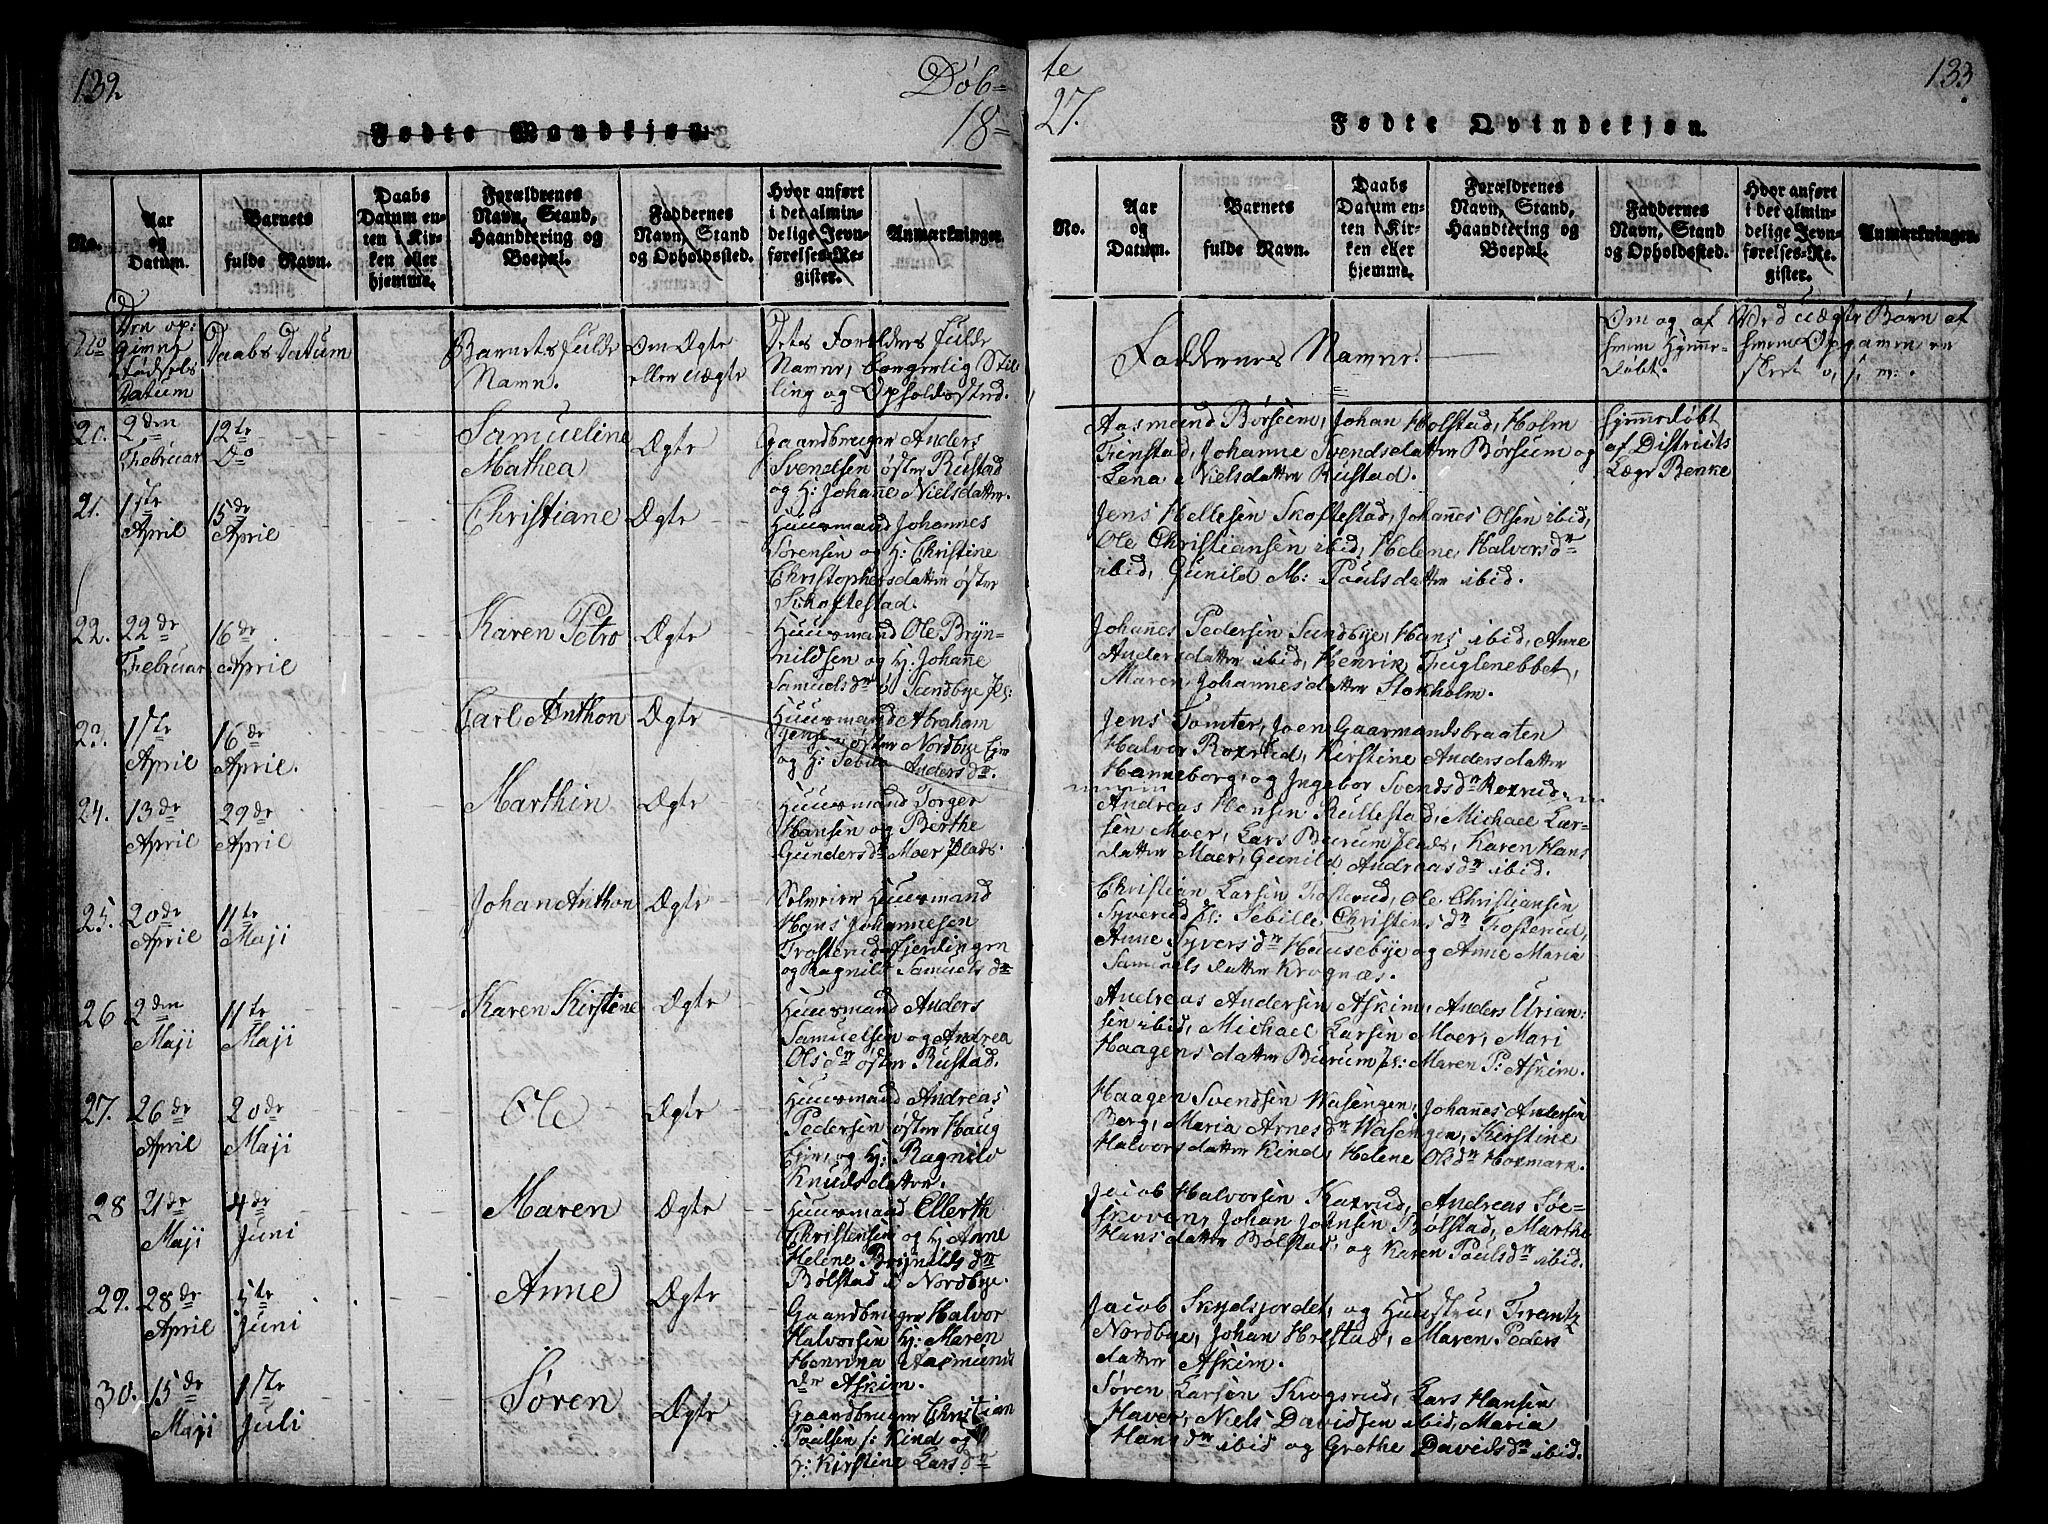 132
Døb=
18=
Fødte Mandkjøn.
No.
Aar
og
Datum.
Barnets
fulde Navn.
Daabs
Datum en-
ten i Kir-
ken eller
hjemme.
Forældrenes
Navn, Stand,
Haandtering og
Boepæl.
Faddernes
Navn, Stand
og Opholdssted.
Hvor anført
i det almin-
delige Jevn-
førelses-Re-
gister.
Anmærkninger.
No
Den op:
givne
Fødsels
Datum
Daabs Datum
Barnets fulde
Navn.
Om Ægte
eller Uægte
Dets Forældres fulde
Navne, borgerlig Stil
ling og Opholdssted.
20.
2den
Februar
12te
Do
Samueline
Mathea
Ægte
Gaardbruger Anders
Svendsen øster Rustad
og H: Johañe Nielsdatter.
21.
1ste
April
15de
April
Christiane
Ægte
Huusmand Johannes
Sørensen og H: Christine
Christophersdatter øster
Skoftestad.
22.
22de
Februar
16de
April
Karen Petro
Ægte
Huusmand Ole Bryn-
nildsen og H: Johañe
Samuelsdr i Sundbye Pl:
23.
1ste
April
16de
April.
Carl Anthon
Ægte
Huusmand Abraham
øster Nordbye Eje
og H: Sebila Andersdr.
24.
13de
April
29de
April
Marthin
Ægte
Huusmand Torger
Hansen og Berthe
Gundersdr Moer Plads.
25.
20de
April
11te
Maji
Johan Anthon
Ægte
Selveier Huusmand
Hans Johannesen
Trosterud Fjerdingen
og Ragnild Samuelsdr
26
2den
Maji
11te
Maji
Karen Kirstine
Ægte
Huusmand Anders
Samuelsen og Andrea
Olsdr øster Rustad.
27.
26de
April
20de
Maji
Ole
Ægte
Huusmand Andreas
Pedersen øster Haug
Eje, og H: Ragnild
Knudsdatter.
28
21de
Maji
4de
Juni
Maren
Ægte
Huusmand Ellerth
Christensen og H. Anne
Helene Brynildsdr
Bølstad i Nordbye.
29.
28de
April
5te
Juni
Anne
Ægte
Gaardbruger Halvor
Halvorsen H: Maren
Henrina Aasmunds
dr Askim.
30.
15de
Maji
1ste
Juli
Søren
Ægte
Gaardbruger Christian
Poulsen i Kind og
H: Kirstine Larsdr
133.
te
27.
Fødte Qvindekjøn.
No.
Aar
og
Datum.
Barnets
fulde Navn.
Daabs
Datum en-
ten i Kir-
ken eller
hjemme.
Forældrenes
Navn, Stand,
Haandtering og
Boepæl.
Faddernes
Navn, Stand
og Opholdssted.
Hvor anført
i det almin-
delige Jevn-
førelses-Re-
gister.
Anmærkninger.
Faddernes Navne.
Om og af
hvem hjemme-
døbt.
Ved uægte Børn af
hvem Opgaven er
skeet o, s, v.
Aasmund Børsum, Johan Holstad, Holm
Finstad, Johanne Svendsdatter Børsum og
Lena Nielsdatter Rustad.
hjemmedøbt
af Districts
Læge Benke
Jens Hellesen Skoftestad, Johañes Olsen ibid,
Ole Christiansen ibid, Helene Halvorsdr
ibid, Gunild M: Poulsdatter ibid.
Johañes Pedersen Sundbye, Hans ibid, Anne
Andersdatter ibid, Henrik Fuglenebbet,
Maren Johannesdatter Stokholm.
Jens Tomter, Joen Gaarmandsbraaten
Halvor Roxrud, Kirstine Andersdatter
Hanneborg, og Ingebor Svendsdr Roxrud.
Andreas Hansen Rullestad, Michael Lar-
sen Moer, Lars Burum Plads, Karen Hans
datter Moer, Gunild Andreasdr ibid.
Christian Larsen Trosterud, Ole Christiansen
Syverud Pl: Sebille Christensdr Trosterud,
Anne Syversdr Hausebye og Anne Maria
Samuelsdatter Krognæs.
Andreas Andersen Askim, Anders Urian-
sen ibid, Michael Larsen Moer, Mari
Haagensdatter Burum Pl: Maren P: Askim.
Haagen Svendsen Wasengen, Johañes Andersen
Berg, Maria Arnesdr Wasengen, Kirstine
Halvorsdatter Kind, Helene Olsdr Hoxmark.
Jacob Halvorsen Kaxrud, Andreas Søe-
skoven, Johan Johnsen Bølstad, Marthe
Hansdatter Bølstad, og Karen Poulsdr ibid.
Jacob Skydsjordet, og Hustru, Frantz
Nordbye, Johan Holstad, Maren Peders
datter Askim.
Søren Larsen Krogsrud, Lars Hansen
Haver, Niels Davidsen ibid, Maria
Hansdr ibid og Grethe Davidsdr ibid.